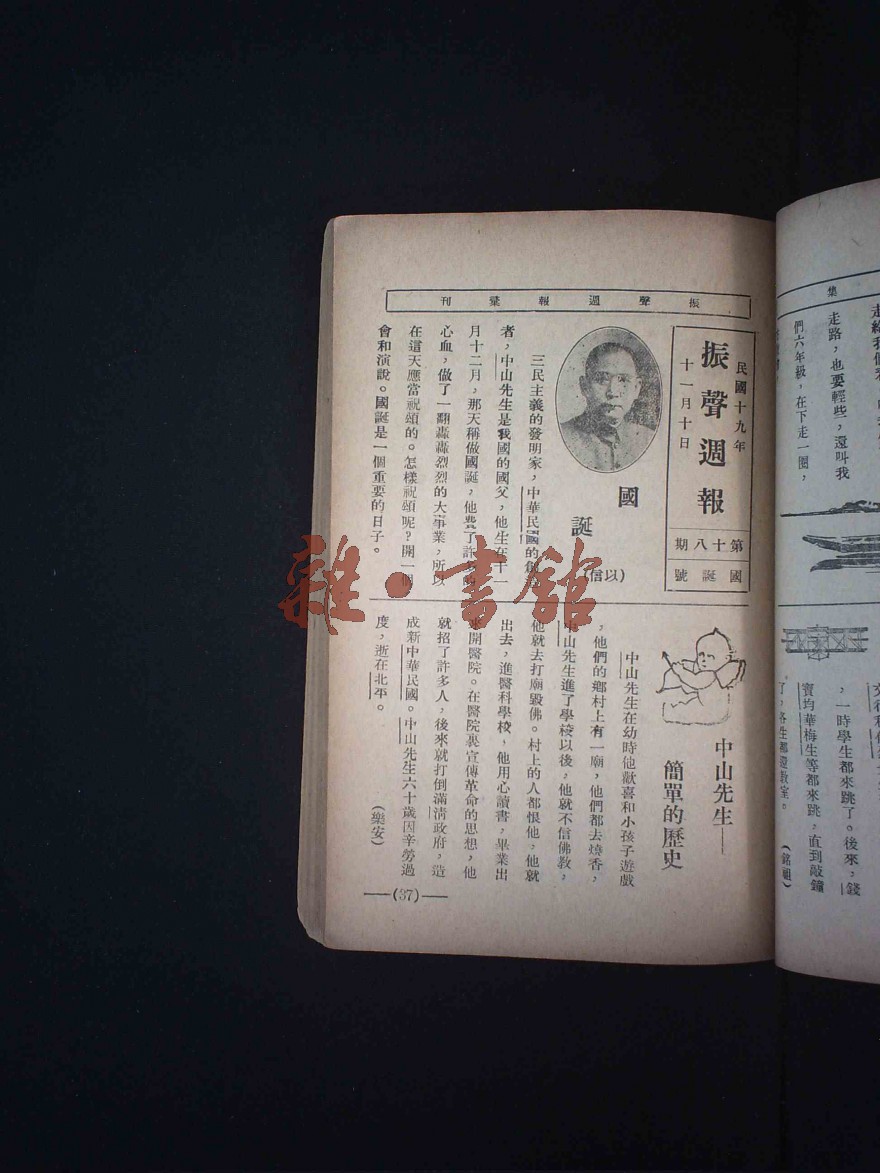 振聲週報彙刊
民國十九年
十一月十日
振聲週報
第十八期
國誕號
國誕
(以信)
三民主義的發明家,中華民國的創造
者,中山先生是我國的國父,他生在十一
月十二月,那天稱做國誕,他費了許多的
心血,做了一翻轟轟烈烈的大事業,所以
在這天應當祝頌的。怎樣祝頌呢?開一個
會和演說。國誕是一個重要的日子。
中山先生——
簡單的歷史
中山先生在幼時他歡喜和小孩子遊戲
,他們的鄉村上有一廟,他們都去燒香,
中山先生進了學校以後,他就不信佛教,
他就去打廟毀佛。村上的人都恨他,他就
出去,進醫科學校,他用心讀書,畢業出
來開醫院。在醫院裏宣傳革命的思想,他
就招了許多人,後來就打倒滿清政府,造
成新中華民國。中山先生六十歲因辛勞過
度,逝在北平。
(樂安)
—(37)—
集
走路,也要輕些,還叫我
們六年級,在下走一圈,
,一時學生都來跳了。後來,錢
寶均華梅生等都來跳,直到敲鐘
了,各生都進教室。
雜·書館